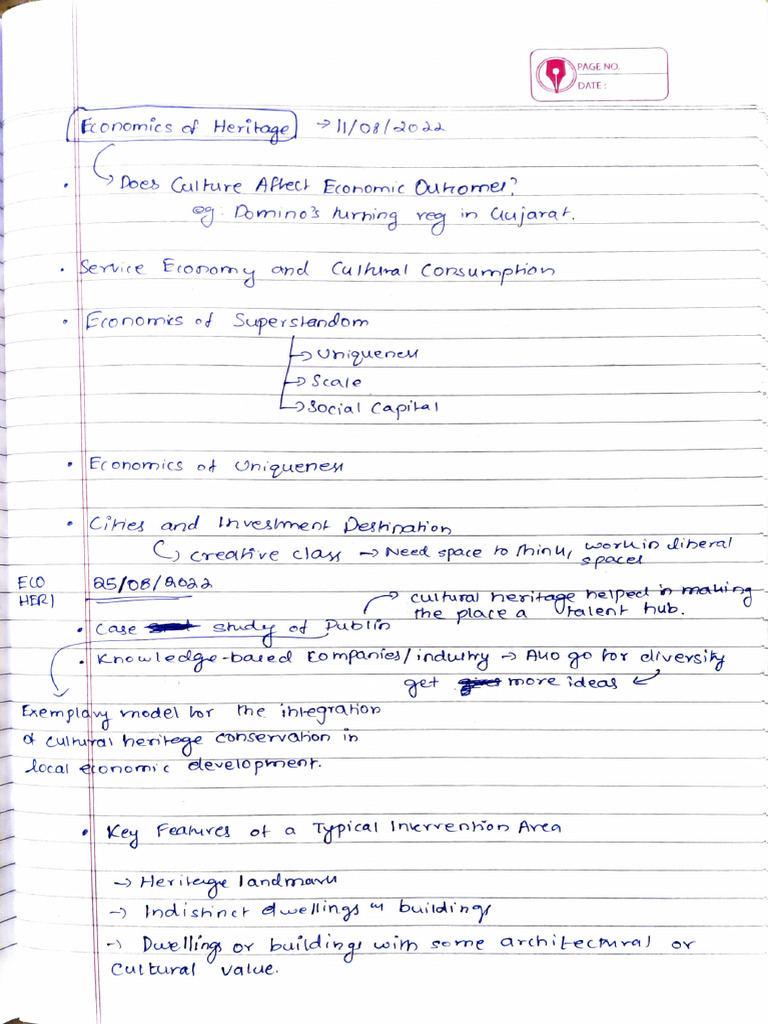 PAGE NO.
DATE :
Economics of Heritage → 11/08/2022
• Does Culture Affect Economic Outcomes?
eg: Domino's turning reg in Gujarat.
• Service Economy and Cultural Consumption
• Economics of Superstardom
→ Uniqueness
→ Scale
→ Social Capital
• Economics of Uniqueness
• Cities and Investment Destination
creative class → Need space to think, work in liberal
spaces
ECO
HERI
25/08/2022
cultural heritage helped in making
the place a talent hub.
• Case study of Dublin
• Knowledge-based Companies/industry → Also go for diversity
get more ideas
Exemplary model for the integration
of cultural heritage conservation in
local economic development.
• Key Features of a Typical Intervention Area
→ Heritage landmark
→ Indistinct dwellings or buildings
→ Dwellings or buildings with some architectural or
cultural value.